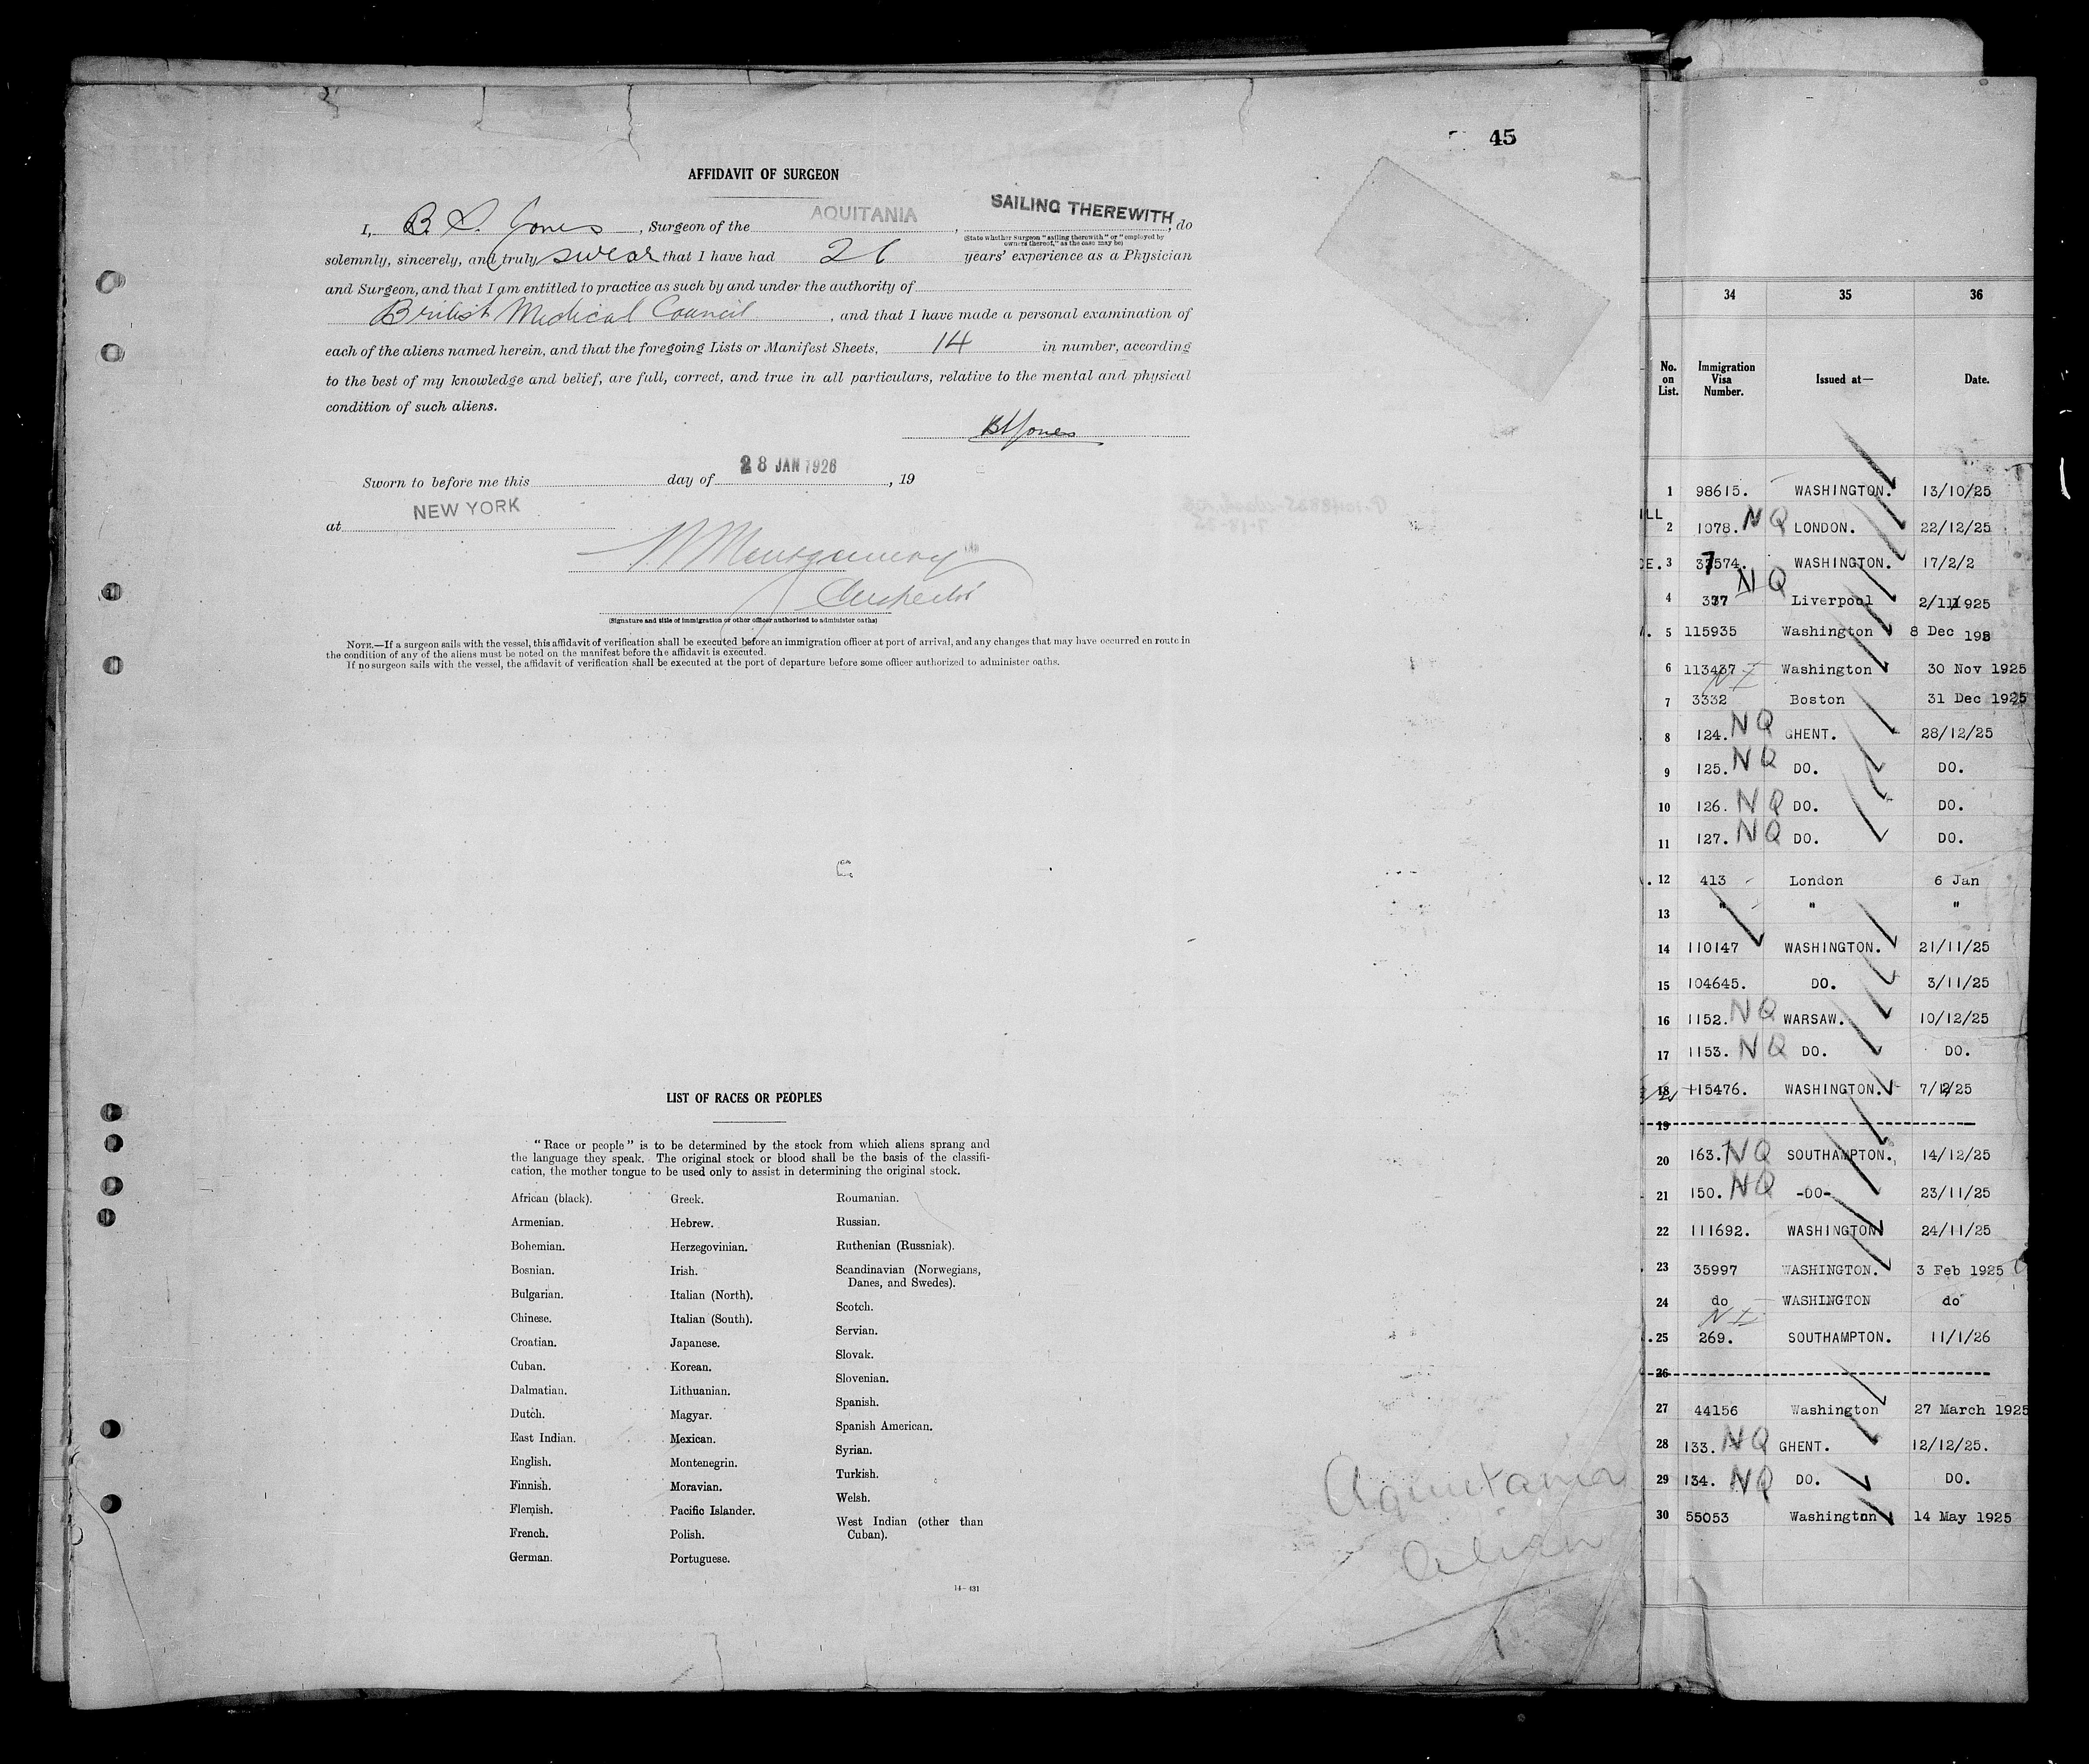 45
AFFIDAVIT OF SURGEON
I, B. S. Jones, Surgeon of the AQUITANIA, SAILING THEREWITH, do
(State whether Surgeon "sailing therewith" or "employed by
owners thereof," as the case may be)
solemnly, sincerely, and truly swear that I have had 26 years' experience as a Physician
and Surgeon, and that I am entitled to practice as such by and under the authority of
British Medical Council, and that I have made a personal examination of
each of the aliens named herein, and that the foregoing Lists or Manifest Sheets, 14 in number, according
to the best of my knowledge and belief, are full, correct, and true in all particulars, relative to the mental and physical
condition of such aliens.
BSJones
Sworn to before me this day of 28 JAN 1926, 19
at NEW YORK
Montgomery
Inspector
(Signature and title of immigration or other officer authorized to administer oaths)
NOTE.—If a surgeon sails with the vessel, this affidavit of verification shall be executed before an immigration officer at port of arrival, and any changes that may have occurred en route in
the condition of any of the aliens must be noted on the manifest before the affidavit is executed.
If no surgeon sails with the vessel, the affidavit of verification shall be executed at the port of departure before some officer authorized to administer oaths.
LIST OF RACES OR PEOPLES
"Race or people" is to be determined by the stock from which aliens sprang and
the language they speak. The original stock or blood shall be the basis of the classifi-
cation, the mother tongue to be used only to assist in determining the original stock.
African (black). Greek. Roumanian.
Armenian. Hebrew. Russian.
Bohemian. Herzegovinian. Ruthenian (Russniak).
Bosnian. Irish. Scandinavian (Norwegians,
Danes, and Swedes).
Bulgarian. Italian (North).
Chinese. Italian (South). Scotch.
Croatian. Japanese. Servian.
Cuban. Korean. Slovak.
Dalmatian. Lithuanian. Slovenian.
Dutch. Magyar. Spanish.
East Indian. Mexican. Spanish American.
English. Montenegrin. Syrian.
Finnish. Moravian. Turkish.
Flemish. Pacific Islander. Welsh.
French. Polish. West Indian (other than
Cuban).
German. Portuguese.
14—431
Aquitania
Alien
34 35 36
No. on List. Immigration Visa Number. Issued at— Date.
1 98615. WASHINGTON. 13/10/25
ILL
2 1078. NQ LONDON. 22/12/25
DE. 3 37574. WASHINGTON. 17/2/2
4 337 NQ Liverpool 2/11/1925
5 115935 Washington 8 Dec 192
6 113437 Washington 30 Nov 1925
NI
7 3332 Boston 31 Dec 1925
8 124. NQ GHENT. 28/12/25
9 125. NQ DO. DO.
10 126. NQ DO. DO.
11 127. NQ DO. DO.
12 413 London 6 Jan
13 " " "
14 110147 WASHINGTON. 21/11/25
15 104645. DO. 3/11/25
16 1152. NQ WARSAW. 10/12/25
17 1153. NQ DO. DO.
18 115476. WASHINGTON. 7/12/25
19
20 163. NQ SOUTHAMPTON. 14/12/25
21 150. NQ -DO- 23/11/25
22 111692. WASHINGTON 24/11/25
23 35997 WASHINGTON. 3 Feb 1925
24 do WASHINGTON do
NI
25 269. SOUTHAMPTON. 11/1/26
26
27 44156 Washington 27 March 1925
28 133. NQ GHENT. 12/12/25.
29 134. NQ DO. DO.
30 55053 Washington 14 May 1925